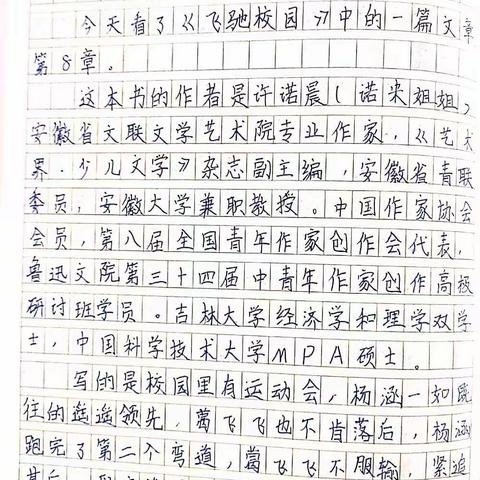 今天看了《飞驰校园》中的一篇文章
第8章。
这本书的作者是许诺晨(诺米姐姐)
安徽省文联文学艺术院专业作家,《艺术
界·少儿文学》杂志副主编,安徽省青联
委员,安徽大学兼职教授。中国作家协会
会员,第八届全国青年作家创作会代表,
鲁迅文院第三十四届中青年作家创作高级
研讨班学员。吉林大学经济学和理学双学
士,中国科学技术大学MPA硕士。
写的是校园里有运动会,杨涵一如既
往的遥遥领先,葛飞飞也不肯落后,杨涵
跑完了第二个弯道,葛飞飞不服输,紧追
其后